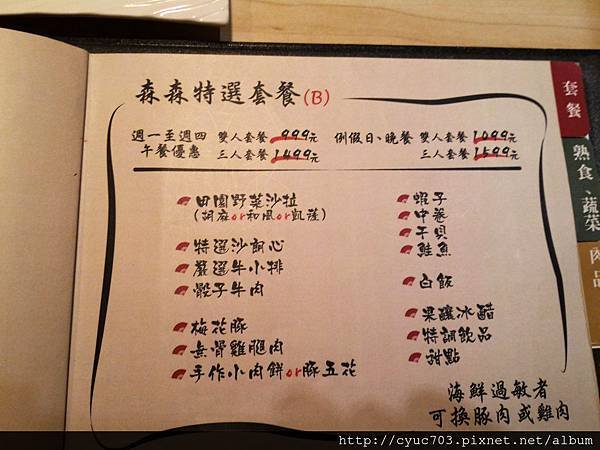 森森特選套餐(B)
週一至週四 雙人套餐 999元 例假日、晚餐 雙人套餐 1099元
午餐優惠 三人套餐 1499元 三人套餐 1599元
田園野菜沙拉
(胡麻or和風or凱薩)
特選沙朗心
嚴選牛小排
骰子牛肉
梅花豚
無骨雞腿肉
手作小肉餅or豚五花
蝦子
中卷
干貝
鮭魚
白飯
果釀冰醋
特調飲品
甜點
海鮮過敏者
可換豚肉或雞肉
套餐
熟食、蔬菜
肉品
http://cyuc703.pixnet.net/album